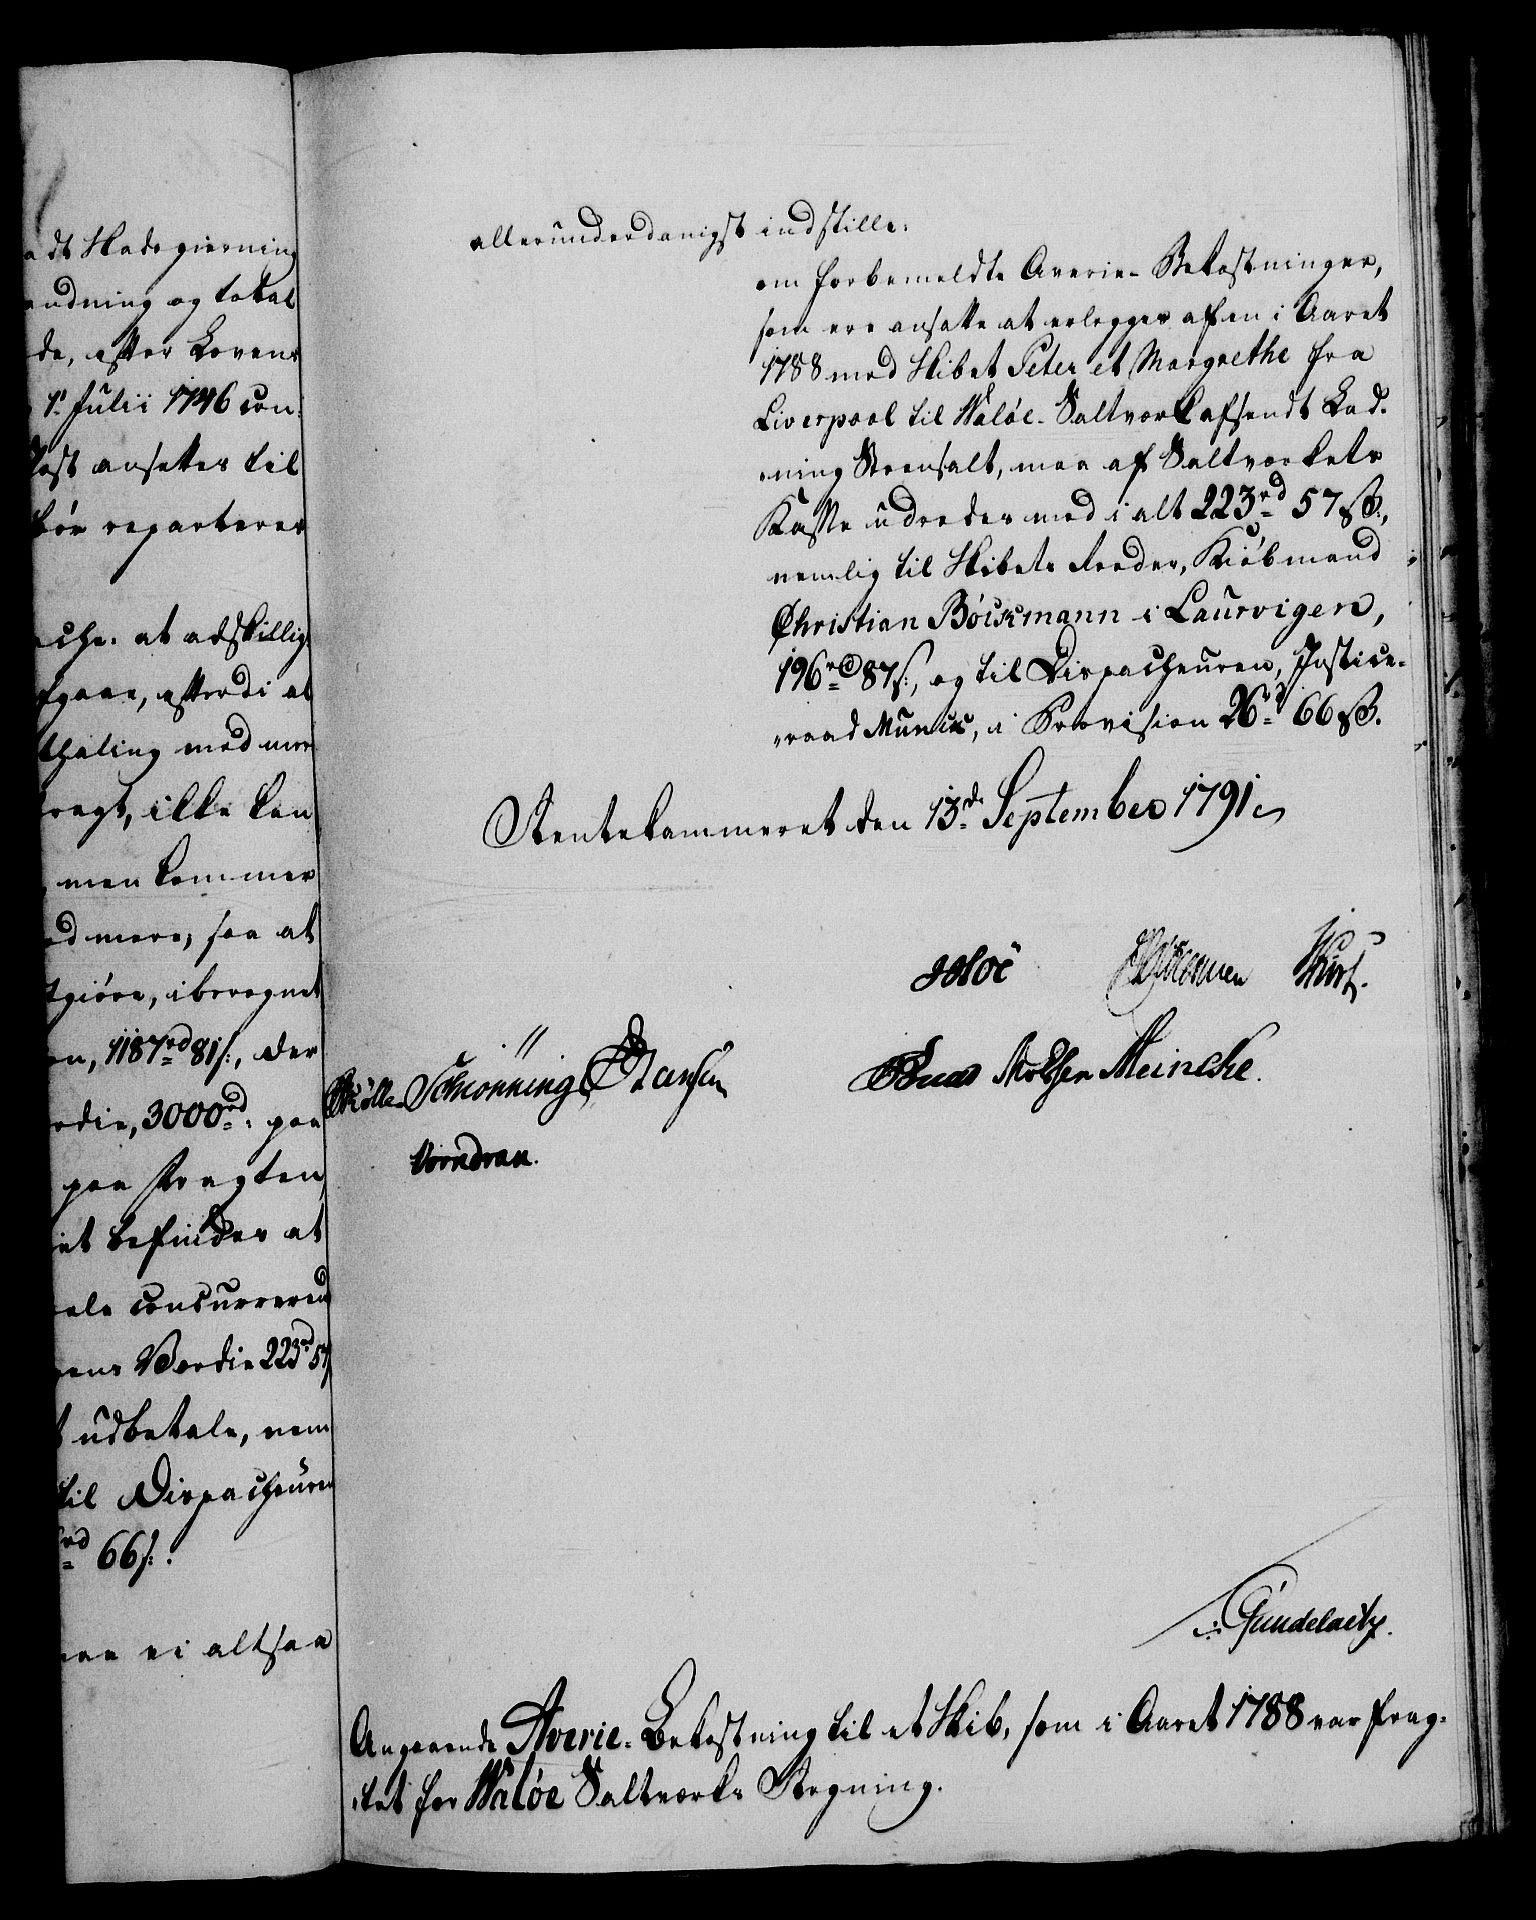 adt Skades gierning
endning og total
de, efter Lovens
1e Julii 1746 con-
Kost ansettes til
bør reparteres
ache. at adskillig
fgaae, efterdi at
thaling med mere
fragt, ikke kan
men kommer
ed mere, saa at
tgiøre, iberegnet
on, 1187rd 81s:, der
erdie, 3000rd: paa
paa Fragten
et befindes at
ele concurrerend
gens Værdie 223rd 57
t udbetale, nem
til Dispacheuren
rd 66s:.
ve vi altsaa
allerunderdanigst indstille:
om forbemeldte Averie-Bekostninger,
som ere ansatte at erlegges af en i Aaret
1788 med Skibet Peter et Margrethe fra
Liverpool til Waløe-Saltværk afsendt Lad-
-ning Steensalt, maa af Saltværkets
Kasse udredes med i alt 223rd 57 ß:,
nemlig til Skibets Reeder, Kiøbmand
Christian Böckmann i Laurvigen,
196rd 87s:, og til Dispacheuren, Justice-
-raad Munck, i Provision 26rd 66 ß.
Rentekammeret den 13de September 1791.
Schiønning Hansen
Meincke.
Vorndran.
Gundelach.
Angaaende Averie-Bekostning til et Skib, som i Aaret 1788 var frag-
-tet for Waløe Saltværks Regning.